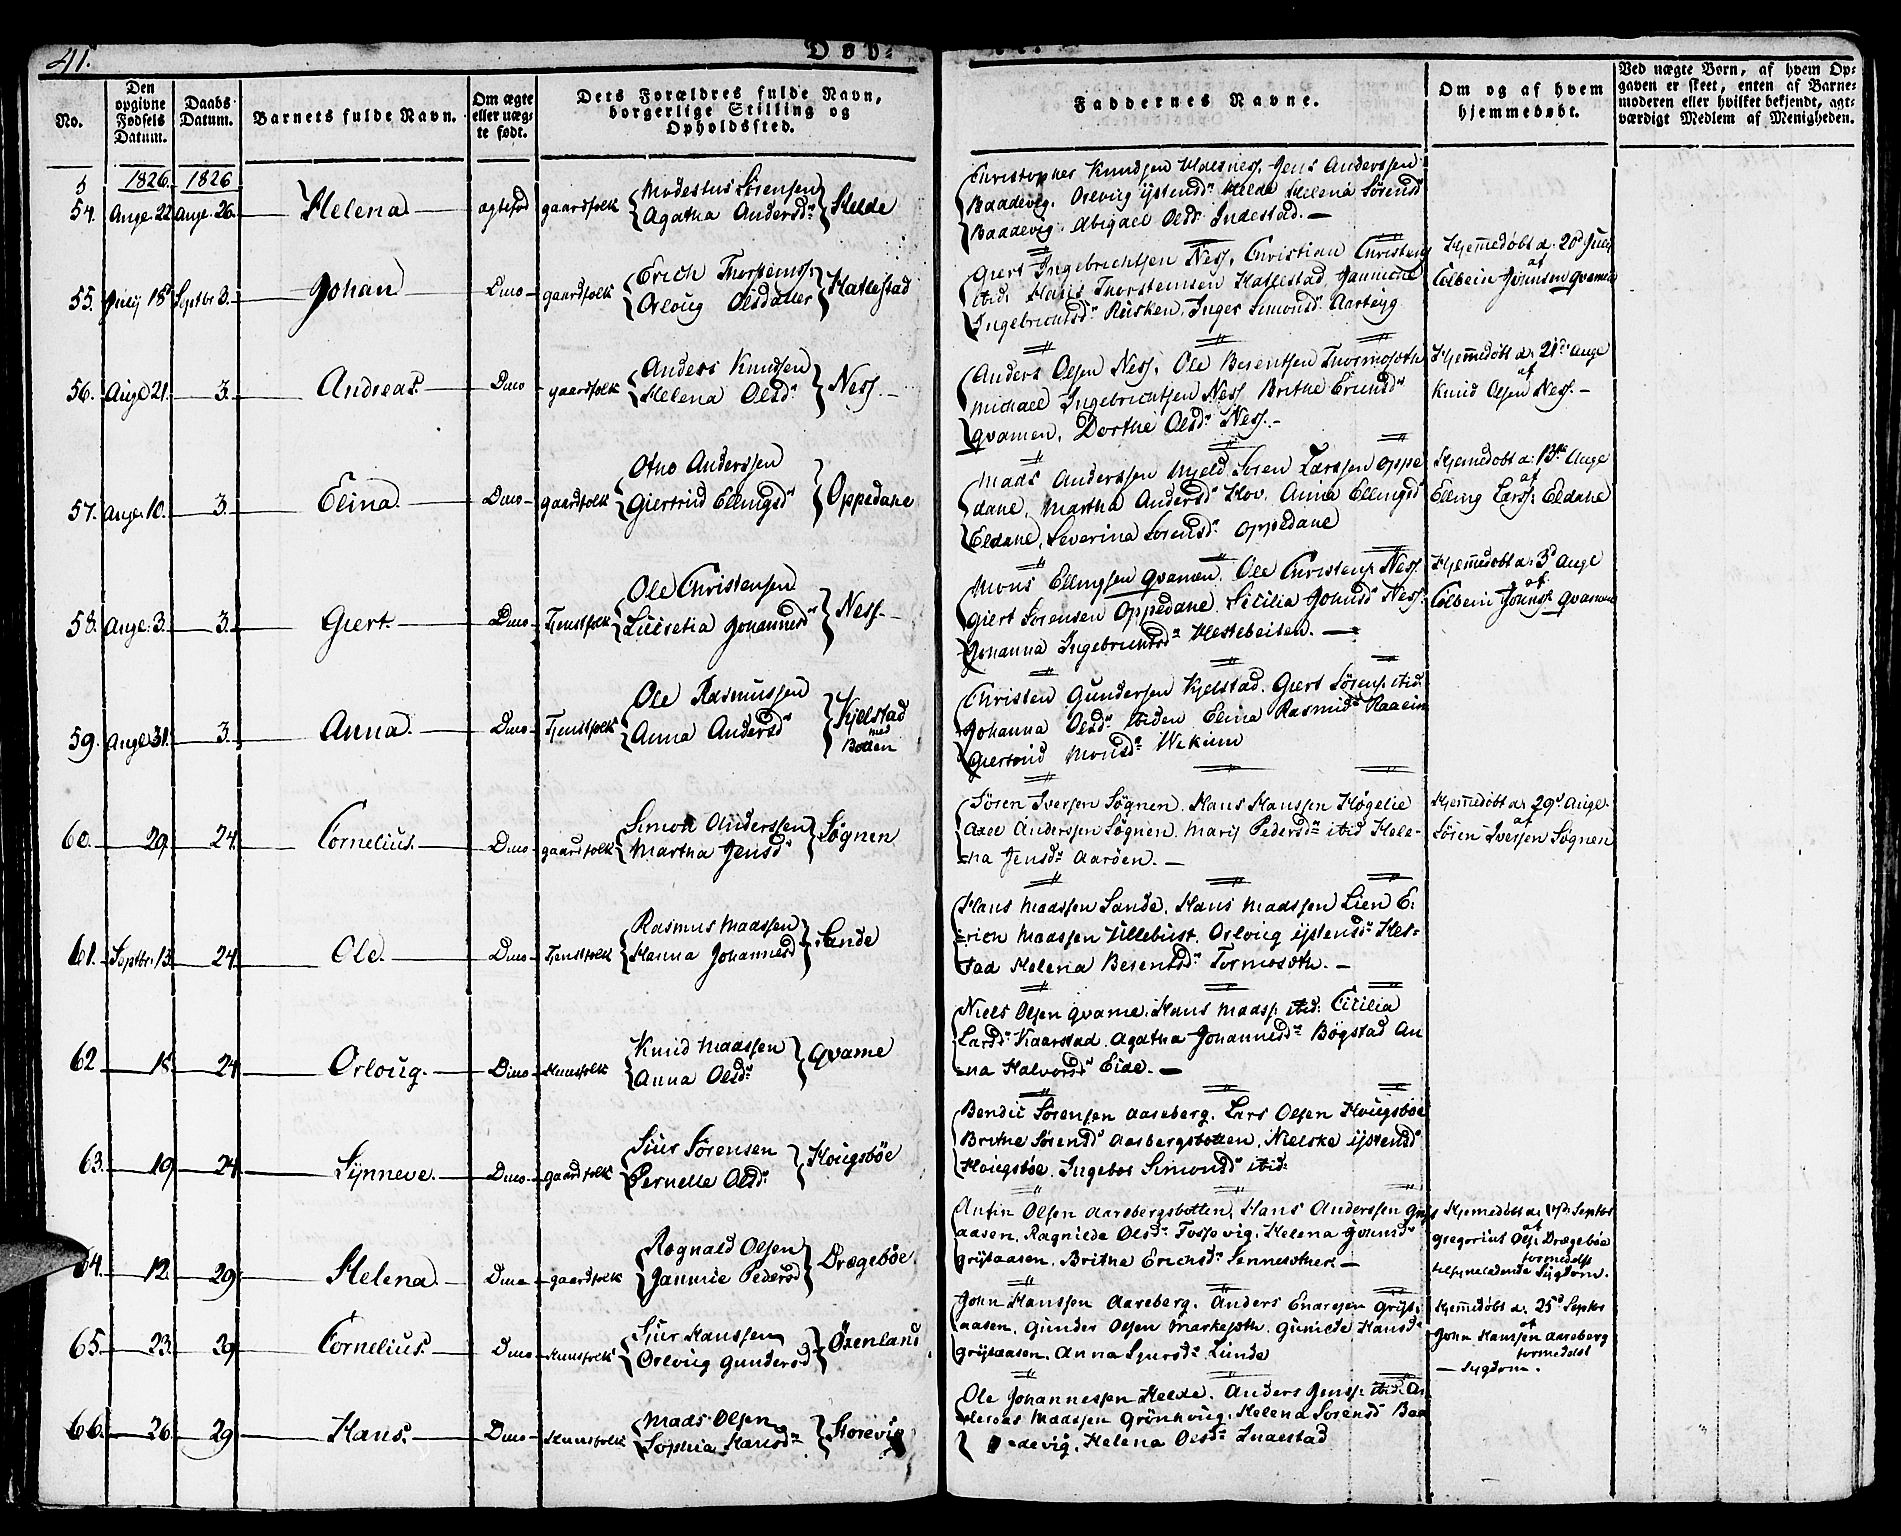 41.
Døb-
No.
Den opgivne Fødsels Datum.
Daabs Datum.
Barnets fulde Navn.
Om ægte eller uægte født.
Dets Forældres fulde Navn, borgerlige Stilling og Opholdssted.
Faddernes Navne.
Om og af hvem hjemmedøbt.
Ved uægte Børn, af hvem Opgaven er skeet, enten af Barnemoderen eller hvilket bekjendt, agtværdigt Medlem af Menigheden.
1826 1826
54. Aug. 22 Aug. 26. Helena ægtefød gaardfolk Modestus Sørensen Agatha Andersd. Helde
Christopher Knudsen Standnes, Jens Anderssen
Baadevig. Orloug Ystensd. Helde Helena Sørensd
Baadevig Abigael Olsd. Indestad.
55. July 18 Septbr 3. Johan Dito gaardfolk Erich Thorstens. Orloug Olsdatter Hatlestad
Giert Ingebrichtsen Ness, Christian Christens
ibid. Hans Thorstensen Hatlestad Jannicke
Ingebrichtsd. Rusken, Inger Simonsd. Aarteigg
Hjemmedøbt d. 20d July af
Colbein Johnsen Qvamen
56. Aug 21. 3. Andreas. Dito gaardfolk Anders Knudsen Helena Olsd. Ness.
Anders Olsen Ness, Ole Berentsen Thormosoth
Michael Ingebrichtsen Ness Brithe Erichsd
Qvamen, Dorthe Olsd. Ness.
Hjemmedøbt d. 21d Aug af
Knud Olsen Ness.
57. Aug. 10. 3. Elina Dito gaardfolk Otho Anderssen Giertrud Ellingsd Oppedane
Mads Anderssen Mjeld, Søren Larssen Oppe
dane, Martha Andersd. Hov. Anna Ellingsd
Eldane, Severina Sørensd. Oppedane
Hjemmedøbt d. 13de Aug af
Elling Larss. Eldane
58. Aug. 3. 3. Giert. Dito Tjenstfolk Ole Christensen Lucretia Johannesd Ness.
Mons Ellingsen Qvamen. Ole Christens. Ness
Giert Sørensen Oppedane. Cicilia Johnsd Ness.
Johanna Ingebrichtsd. Hestebeiten.
Hjemmedøbt d. 3d Aug af
Colbein Johns. Qvamen
59. Aug 31. 3. Anna. Dito Tjenstfolk Ole Rasmussen Anna Andersd Kjelstad med Botten
Christen Gundersen Kjelstad. Giert Sørens. ibid.
Johanna Olsd. ibiden Elina Rasmusd.
Giertrud Monsd.
60. 29. 24. Cornelius. Dito gaardfolk Simon Anderssen Martha Jensd. Søgnen
Søren Iversen Søgnen. Hans Hanssen Høgelie
Axel Anderssen Søgnen. Maris Pedersd. ibid Hele-
na Jensd. Aarøen.
Hjemmedøbt d. 29d Aug af
Søren Iversen Søgnen
61. Septbr. 13. 24. Ole. Dito Tjenstfolk Rasmus Maassen Hanna Johannesd Sande
Hans Maassen Sande, Hans Maassen Lien E-
rich Maassen Lillebust. Orloug Ystensd. Hel-
stad Helena Berentsd. Tormosoth.
62 18. 24 Orloug. Dito Huusfolk Knud Maassen Anna Olsd. Qvame
Niels Olsen Qvame. Hans Maass. ibid. Cicilia
Larsd. Kaarstad. Agatha Johannesd. Bøgstad An
na Halvorsd Eide.
63. 19 24 Synneve. Dito gaardfolk Siur Sørensen Pernelle Olsd. Hougsbøe
Bendic Sørensen Aareberg. Lars Olsen Hougsbøe
Brithe Sørensd. Aarbergsbotten, Nielske Ystensd
Hougsbøe. Ingebor Simonsd ibid.
64. 12. 29. Helena. Dito gaardfolk Rognald Olsen Jannicke Pedersd Drægebøe
Anfin Olsen Aarebergsbotten. Hans Anderssen Grys
aasen, Ragnilde Olsd. Fossevig. Helena
Grytaasen, Brithe Erichsd. Sennesother.
Hjemmedøbt d. Septbr af
Gregorius Ols. Drægebøe
formedelst
tilsyneladende Sygdom.
65. 23. 29 Cornelius. Dito Huusfolk Siur Hanssen Orloug Gundersd Øxenland
John Hanssen Aareberg. Anders Enaresen Gryt-
aasen. Gunder Olsen Markesoth. Gunilde Hansd.
Grytaasen. Anna Siursd. Lunde
Hjemmedøbt d. 25d Septbr af
John Hanssen Aareberg
formedelst
Sygdom.
66. 26. 29 Hans. Dito Huusfolk Mads Olsen Sophia Hansd. Storevig
Ole Johannessen Helde. Anders Jenss. ibid. An
dreas Maassen Grønhvig. Helena Sørensd Baa
devig, Helena Olsd. Indestad